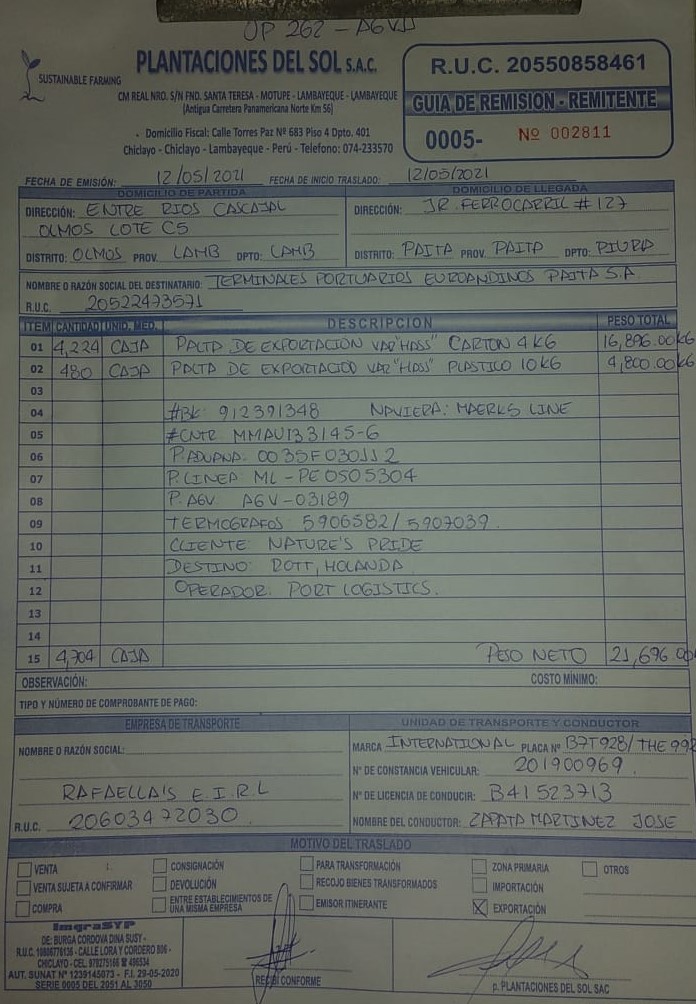 OP 262 - AGVD
SUSTAINABLE FARMING
PLANTACIONES DEL SOL S.A.C.
CM REAL NRO. S/N FND. SANTA TERESA - MOTUPE - LAMBAYEQUE - LAMBAYEQUE
(Antigua Carretera Panamericana Norte Km 56)
- Domicilio Fiscal: Calle Torres Paz Nº 683 Piso 4 Dpto. 401
Chiclayo - Chiclayo - Lambayeque - Perú - Telefono: 074-233570
R.U.C. 20550858461
GUIA DE REMISION - REMITENTE
0005- Nº 002811
FECHA DE EMISIÓN: 12/05/2021 FECHA DE INICIO TRASLADO: 12/05/2021
DOMICILIO DE PARTIDA
DIRECCIÓN: ENTRE RIOS CASCAJAL
OLMOS LOTE C5
DISTRITO: OLMOS PROV. LAMB DPTO: LAMB
DOMICILIO DE LLEGADA
DIRECCIÓN: JR. FERROCARRIL # 127
DISTRITO: PAITA PROV. PAITA DPTO: PIURA
NOMBRE O RAZÓN SOCIAL DEL DESTINATARIO: TERMINALES PORTUARIOS EUROANDINOS PAITA S.A
R.U.C. 20522473571
ITEM CANTIDAD UNID. MED. DESCRIPCION PESO TOTAL
01 4,224 CAJA PALTA DE EXPORTACION VAR "HASS" CARTON 4 KG 16,896.00KG
02 480 CAJA PALTA DE EXPORTACIO VAR "HASS" PLASTICO 10 KG 4,800.00KG
03
04 #BK: 912391348 NAVIERA: MAERKS LINE
05 #CNTR: MMAU133145-6
06 P.ADUANA: 0035F030112
07 P.LINEA: ML - PE0505304
08 P. AGV. AGV-03189
09 TERMOGRAFOS 5906582/5907039.
10 CLIENTE: NATURE'S PRIDE
11 DESTINO: ROTT, HOLANDA
12 OPERADOR: PORT LOGISTICS.
13
14
15 4,704 CAJA PESO NETO 21,696.00
OBSERVACIÓN: COSTO MÍNIMO:
TIPO Y NÚMERO DE COMPROBANTE DE PAGO:
EMPRESA DE TRANSPORTE
NOMBRE O RAZÓN SOCIAL:
RAFAELLA'S E.I.R.L
R.U.C. 20603472030
UNIDAD DE TRANSPORTE Y CONDUCTOR
MARCA INTERNATIONAL PLACA Nº B7T928/THE 992
Nº DE CONSTANCIA VEHICULAR: 201900969.
Nº DE LICENCIA DE CONDUCIR: B41523713
NOMBRE DEL CONDUCTOR: ZAPATA MARTINEZ JOSE
MOTIVO DEL TRASLADO
VENTA CONSIGNACIÓN PARA TRANSFORMACIÓN ZONA PRIMARIA OTROS
VENTA SUJETA A CONFIRMAR DEVOLUCIÓN RECOJO BIENES TRANSFORMADOS IMPORTACIÓN
COMPRA ENTRE ESTABLECIMIENTOS DE UNA MISMA EMPRESA EMISOR ITINERANTE X EXPORTACIÓN
ImgraSYP
DE: BURGA CORDOVA DINA SUSY -
R.U.C. 10806776136 - CALLE LORA Y CORDERO 806 -
CHICLAYO - CEL. 979275166 ☎ 406534
AUT. SUNAT Nº 1239145073 - F.I. 29-05-2020
SERIE 0005 DEL 2051 AL 3050
RECIBI CONFORME
p. PLANTACIONES DEL SOL SAC